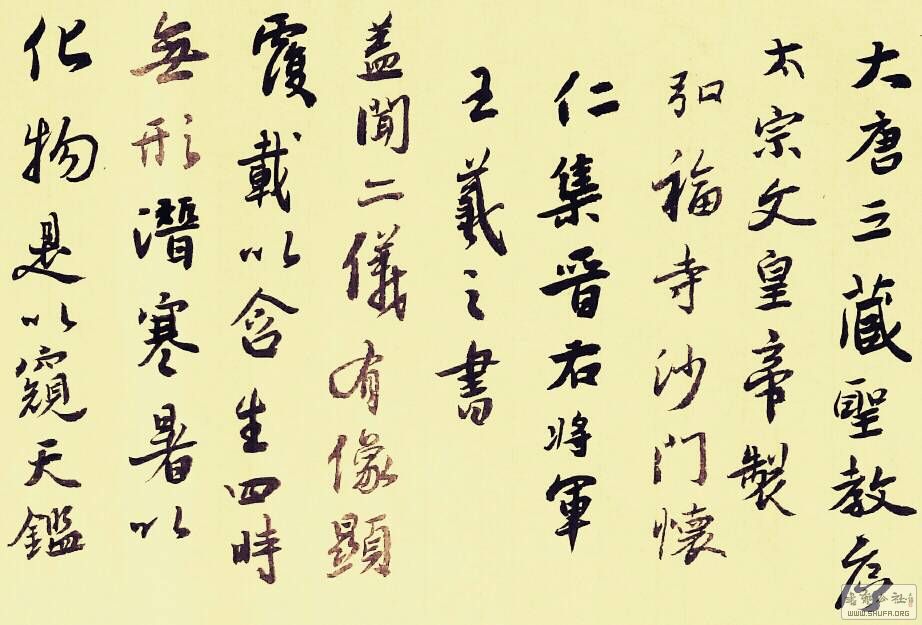 大唐三藏聖教序
太宗文皇帝製
弘福寺沙門懷
仁集晉右將軍
王羲之書
蓋聞二儀有像顯
覆載以含生四時
無形潛寒暑以
化物是以窺天鑑
書法公社
WWW.SHUFA.ORG